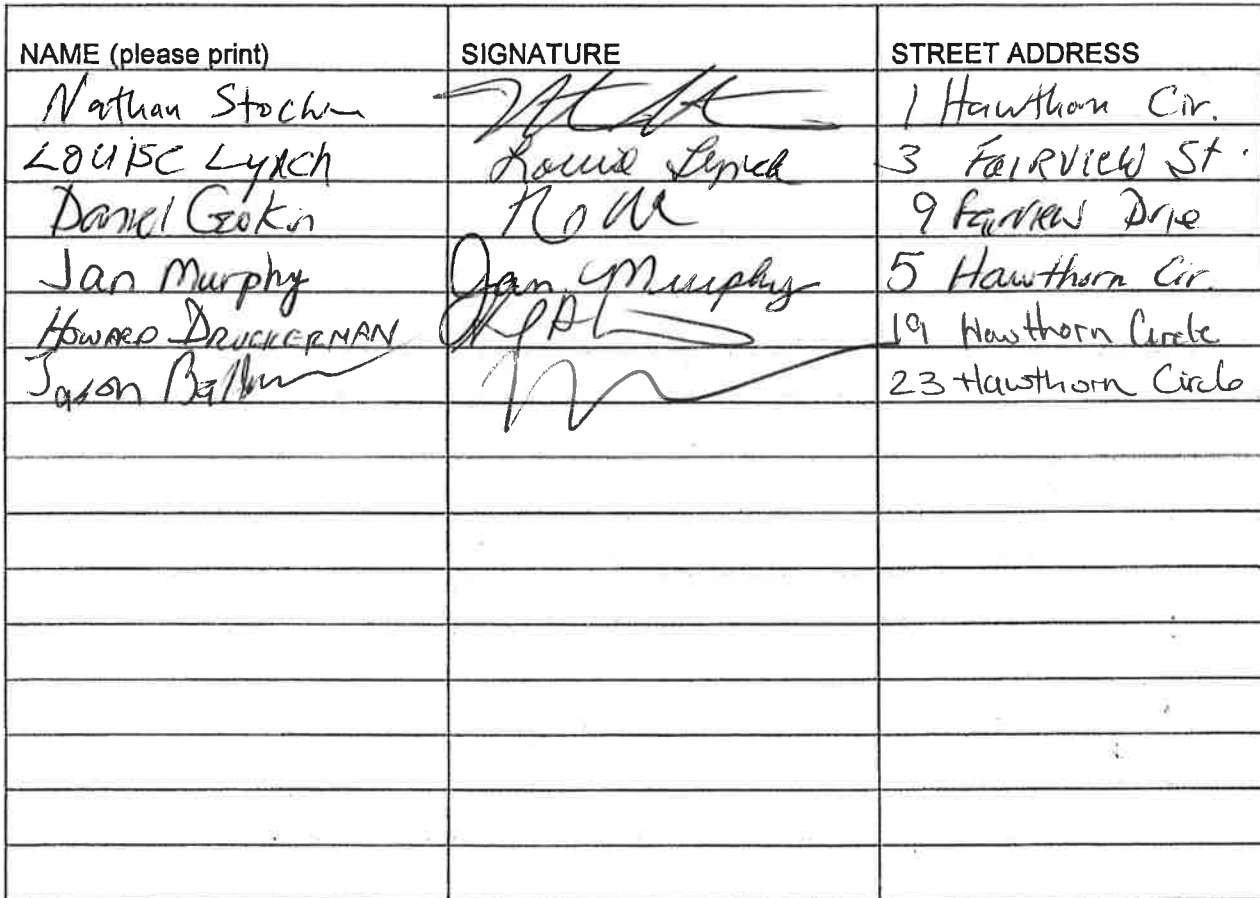 NAME (please print) SIGNATURE STREET ADDRESS
Nathan 1 Hawthorn Cir.
LOUISE Lynch Louise Lynch 3 FAIRVIEW St.
Daniel 9 Fairview Drive
Jan Murphy Jan Murphy 5 Hawthorn Cir.
HOWARD DRUCKERMAN 19 Hawthorn Circle
Jason 23 Hawthorn Circle